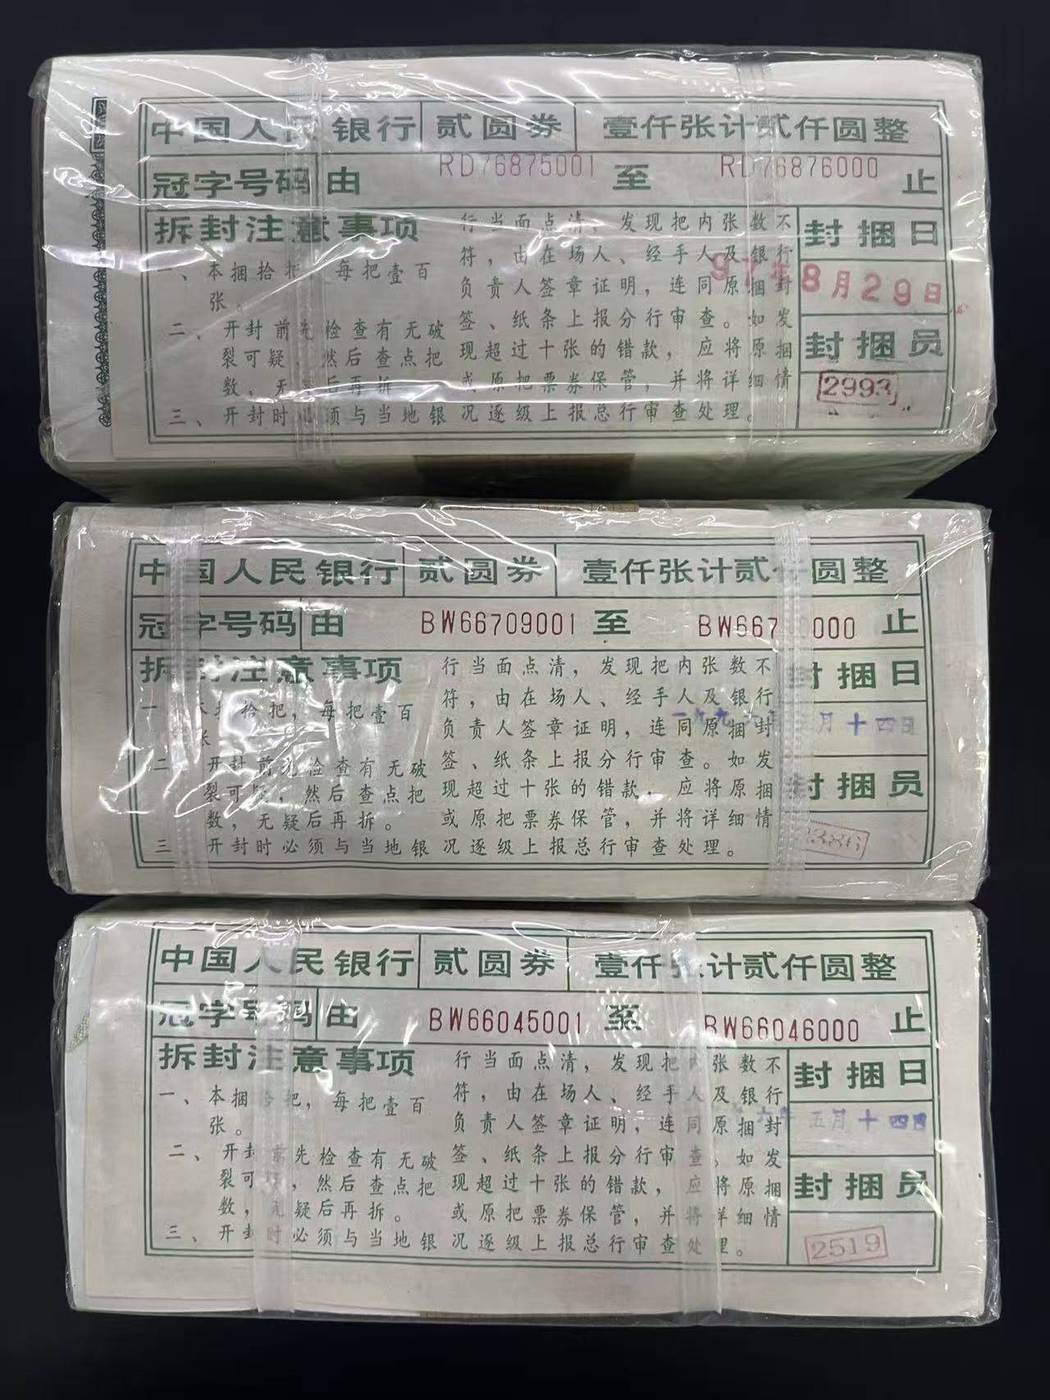 中国人民银行 贰圆券 壹仟张计贰仟圆整
冠字号码 由 RD76875001 至 RD76876000 止
拆封注意事项
一、本捆拾把，每把壹百
张。
二、开封前先检查有无破
裂可疑，然后查点把
数，无疑后再拆。
三、开封时必须与当地银
行当面点清，发现把内张数不
符，由在场人、经手人及银行
负责人签章证明，连同原捆封
签、纸条上报分行审查。如发
现超过十张的错款，应将原捆
或原把票券保管，并将详细情
况逐级上报总行审查处理。
封捆日
97年8月29日
封捆员
2993
中国人民银行 贰圆券 壹仟张计贰仟圆整
冠字号码 由 BW66709001 至 BW667 000 止
拆封注意事项
一 本捆拾把，每把壹百
张
二 开封前先检查有无破
裂可疑，然后查点把
数，无疑后再拆。
三、开封时必须与当地银
行当面点清，发现把内张数不
符，由在场人、经手人及银行
负责人签章证明，连同原捆封
签、纸条上报分行审查。如发
现超过十张的错款，应将原捆
或原把票券保管，并将详细情
况逐级上报总行审查处理。
封捆日
一九九六年五月十四日
封捆员
3386
中国人民银行 贰圆券 壹仟张计贰仟圆整
冠字号码 由 BW66045001 至 BW66046000 止
拆封注意事项
一、本捆拾把，每把壹百
张。
二、开封前先检查有无破
裂可疑，然后查点把
数，无疑后再拆。
三、开封时必须与当地银
行当面点清，发现把内张数不
符，由在场人、经手人及银行
负责人签章证明，连同原捆封
签、纸条上报分行审查，如发
现超过十张的错款，应将原捆
或原把票券保管，并将详细情
况逐级上报总行审查处理。
封捆日
六年五月十四日
封捆员
2519